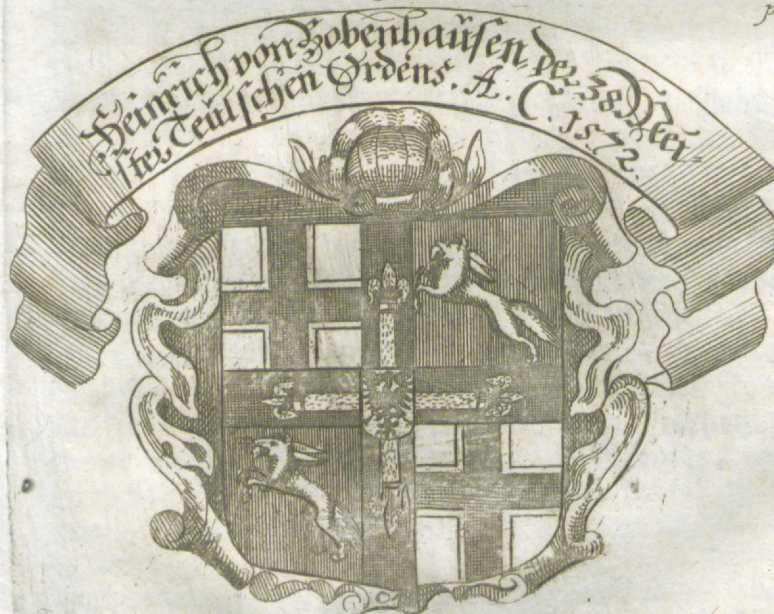 Heinrich von Bobenhausen der 38 Mei-
ster Teutschen Ordens. A. C. 1572.